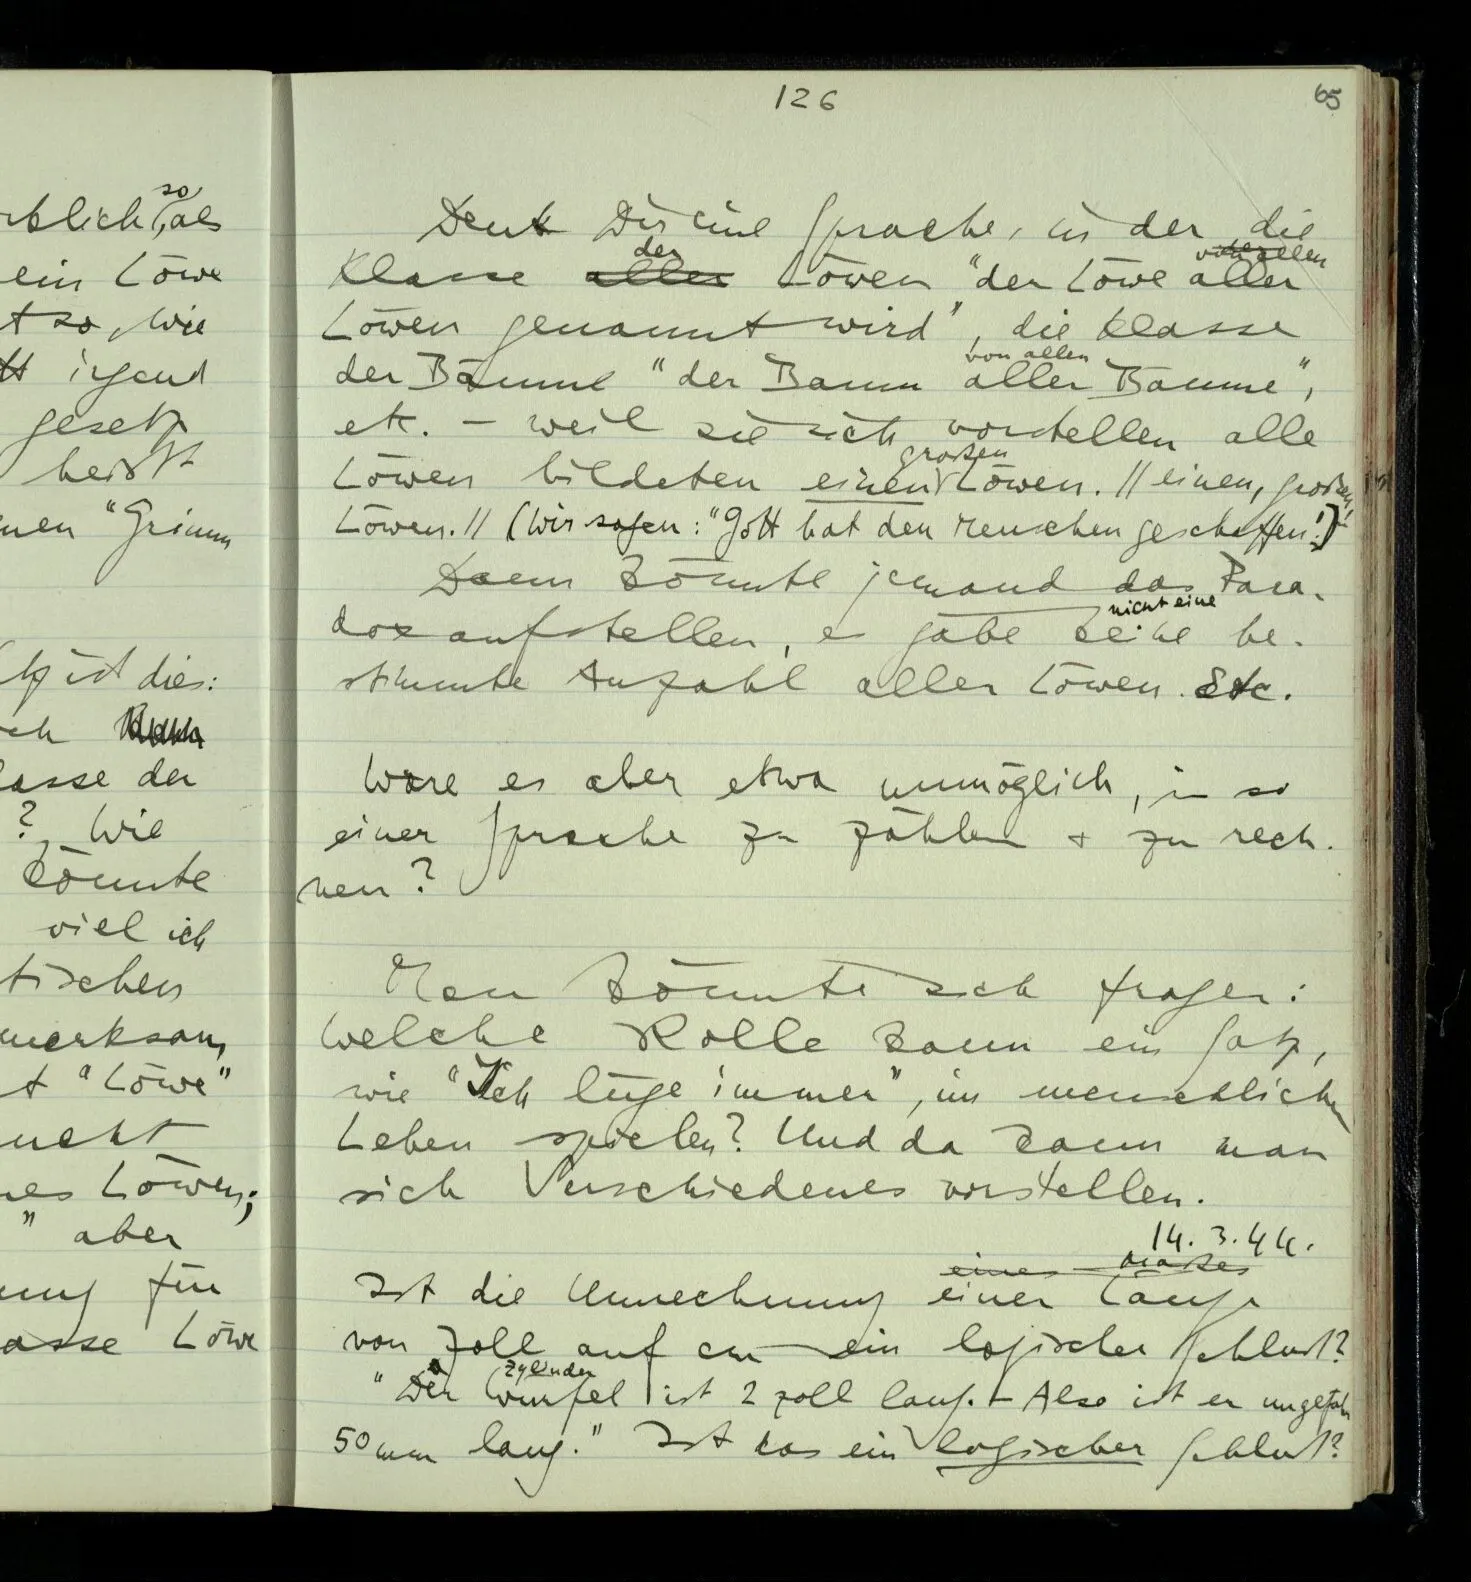 rklich, so als
ein Löwe
t so, wie
irgend
gesetz
heißt
nen "Grimm
tz ist dies:
ch
lasse der
? Wie
könnte
viel ich
tischen
merksam,
t "Löwe"
ucht
nes Löwen;
" aber
ung für
asse Löwe
126
65
Denk Dir eine Sprache, in der die
der von allen
Klasse aller Löwen "der Löwe aller
Löwen genannt wird", die Klasse
von allen
der Bäume "der Baum aller Bäume",
etc. – weil sie sich vorstellen alle
großen
Löwen bildeten einen Löwen. // einen, großen,
Löwen. // (Wir sagen: "Gott hat den Menschen geschaffen!")
Dann könnte jemand das Para-
nicht eine
dox aufstellen, es gäbe keine be-
stimmte Anzahl aller Löwen. Etc.
Wäre es aber etwa unmöglich, in so
einer Sprache zu zählen + zu rech-
nen?
Man könnte sich fragen:
Welche Rolle kann ein Satz,
wie "Ich lüge immer", im menschlichen
Leben spielen? Und da kann man
sich Verschiedenes vorstellen.
14. 3. 44.
eines Maßes
Ist die Umrechnung einer Länge
von Zoll auf cm ein logischer Schluß?
Zylinder
"Der Würfel ist 2 Zoll lang. – Also ist er ungefähr
50 mm lang." Ist das ein logischer Schluß?